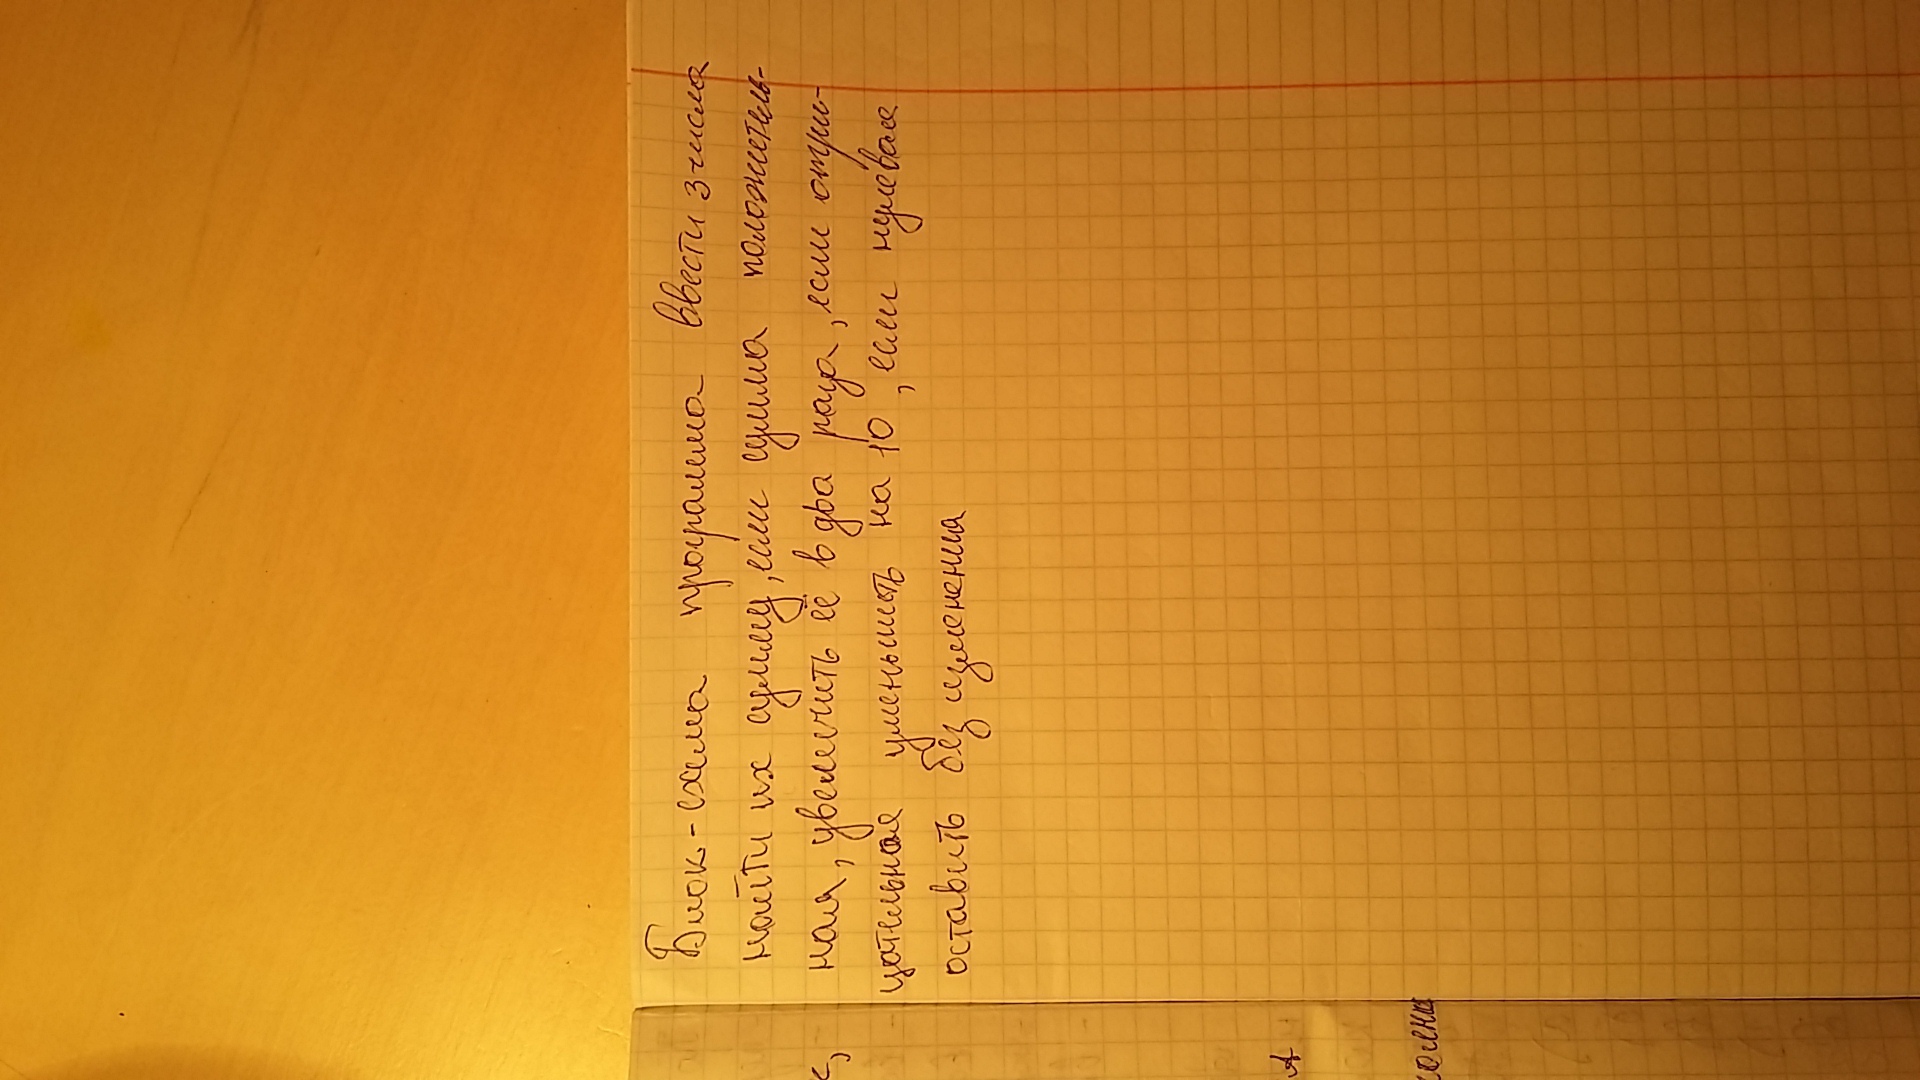 Блок-схема программа ввести 3 числа
найти их сумму, если сумма положитель-
ная, увеличить её в два раза, если отри-
цательная уменьшить на 10, если нулевая
оставить без изменения